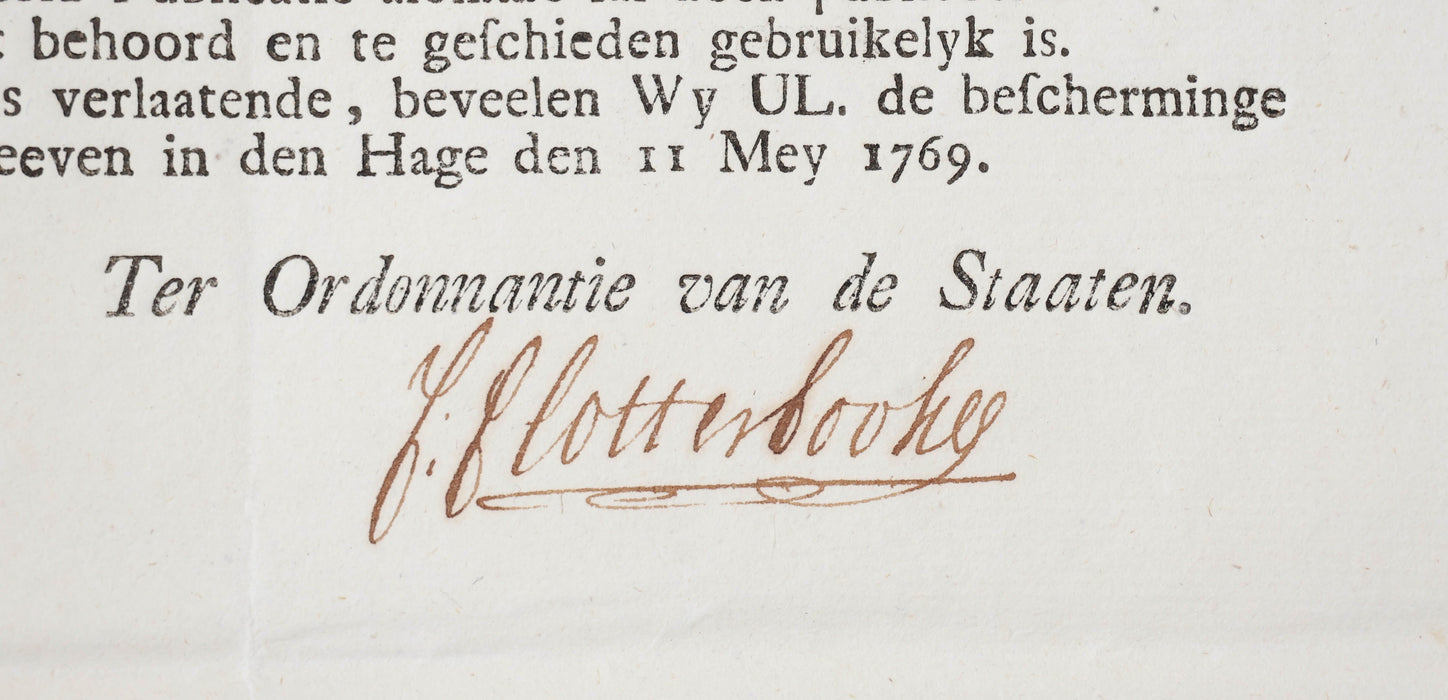 behoord en te geſchieden gebruikelyk is.
s verlaatende, beveelen Wy UL. de beſcherminge
eeven in den Hage den 11 Mey 1769.
Ter Ordonnantie van de Staaten.